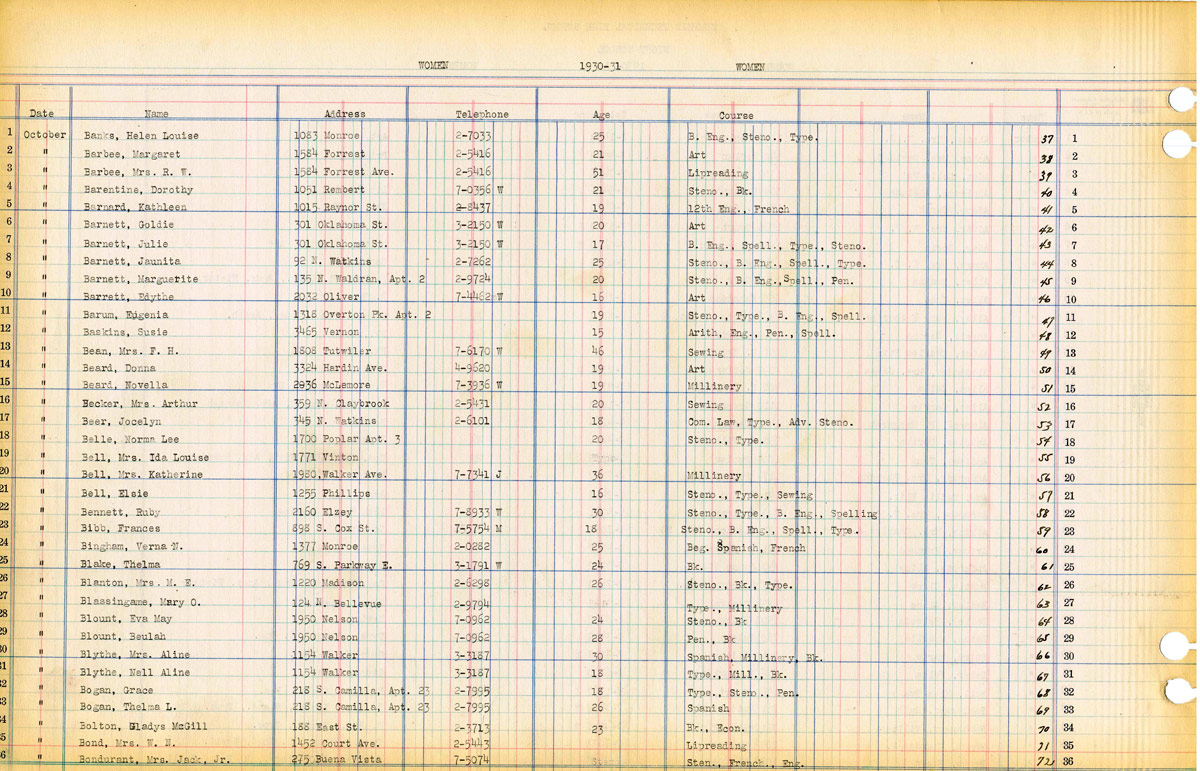 WOMEN 1930-31 WOMEN
Date Name Address Telephone Age Course
1 October Banks, Helen Louise 1083 Monroe 2-7033 25 B. Eng., Steno., Type. 37 1
2 " Barbee, Margaret 1584 Forrest 2-5416 21 Art 38 2
3 " Barbee, Mrs. R. W. 1584 Forrest Ave. 2-5416 51 Lipreading 39 3
4 " Barentine, Dorothy 1051 Rembert 7-0356 W 21 Steno., Bk. 40 4
5 " Barnard, Kathleen 1015 Raynor St. 2-8437 19 12th Eng., French 41 5
6 " Barnett, Goldie 301 Oklahoma St. 3-2150 W 20 Art 42 6
7 " Barnett, Julie 301 Oklahoma St. 3-2150 W 17 B. Eng., Spell., Type., Steno. 43 7
8 " Barnett, Jaunita 92 N. Watkins 2-7262 25 Steno., B. Eng., Spell., Type. 44 8
9 " Barnett, Marguerite 135 N. Waldran, Apt. 2 2-9724 20 Steno., B. Eng.,Spell., Pen. 45 9
10 " Barrett, Edythe 2032 Oliver 7-4462 W 16 Art 46 10
11 " Barum, Eugenia 1318 Overton Pk. Apt. 2 19 Steno., Type., B. Eng., Spell. 47 11
12 " Baskins, Susie 3465 Vernon 15 Arith, Eng., Pen., Spell. 48 12
13 " Bean, Mrs. F. H. 1808 Tutwiler 7-6170 W 46 Sewing 49 13
14 " Beard, Donna 3324 Hardin Ave. 4-9620 19 Art 50 14
15 " Beard, Novella 2036 McLemore 7-3936 W 19 Millinery 51 15
16 " Becker, Mrs. Arthur 359 N. Claybrook 2-5431 20 Sewing 52 16
17 " Beer, Jocelyn 345 N. Watkins 2-6101 18 Com. Law, Type., Adv. Steno. 53 17
18 " Belle, Norma Lee 1700 Poplar Apt. 3 20 Steno., Type. 54 18
19 " Bell, Mrs. Ida Louise 1771 Vinton 55 19
20 " Bell, Mrs. Katherine 1980,Walker Ave. 7-7341 J 36 Millinery 56 20
21 " Bell, Elsie 1255 Phillips 16 Steno., Type., Sewing 57 21
22 " Bennett, Ruby 2160 Elzey 7-8933 W 30 Steno., Type., B. Eng., Spelling 58 22
23 " Bibb, Frances 898 S. Cox St. 7-5754 M 18 Steno., B. Eng., Spell., Type. 59 23
24 " Bingham, Verna N. 1377 Monroe 2-0282 25 Beg. Spanish, French 60 24
25 " Blake, Thelma 769 S. Parkway E. 3-1791 W 24 Bk. 61 25
26 " Blanton, Mrs. M. E. 1220 Madison 2-6298 26 Steno., Bk., Type. 62 26
27 " Blassingame, Mary O. 124 N. Bellevue 2-9794 Type., Millinery 63 27
28 " Blount, Eva May 1950 Nelson 7-0962 24 Steno., Bk 64 28
29 " Blount, Beulah 1950 Nelson 7-0962 28 Pen., Bk 65 29
30 " Blythe, Mrs. Aline 1154 Walker 3-3187 30 Spanish, Millinery, Bk. 66 30
31 " Blythe, Nell Aline 1154 Walker 3-3187 18 Type., Mill., Bk. 67 31
32 " Bogan, Grace 218 S. Camilla, Apt. 23 2-7995 18 Type., Steno., Pen. 68 32
33 " Bogan, Thelma L. 218 S. Camilla, Apt. 23 2-7995 26 Spanish 69 33
34 " Bolton, Gladys McGill 188 East St. 2-3713 23 Bk., Econ. 70 34
35 " Bond, Mrs. W. N. 1452 Court Ave. 2-5443 Lipreading 71 35
36 " Bondurant, Mrs. Jack, Jr. 275 Buena Vista 7-5074 Sten., French., Eng. 72 36